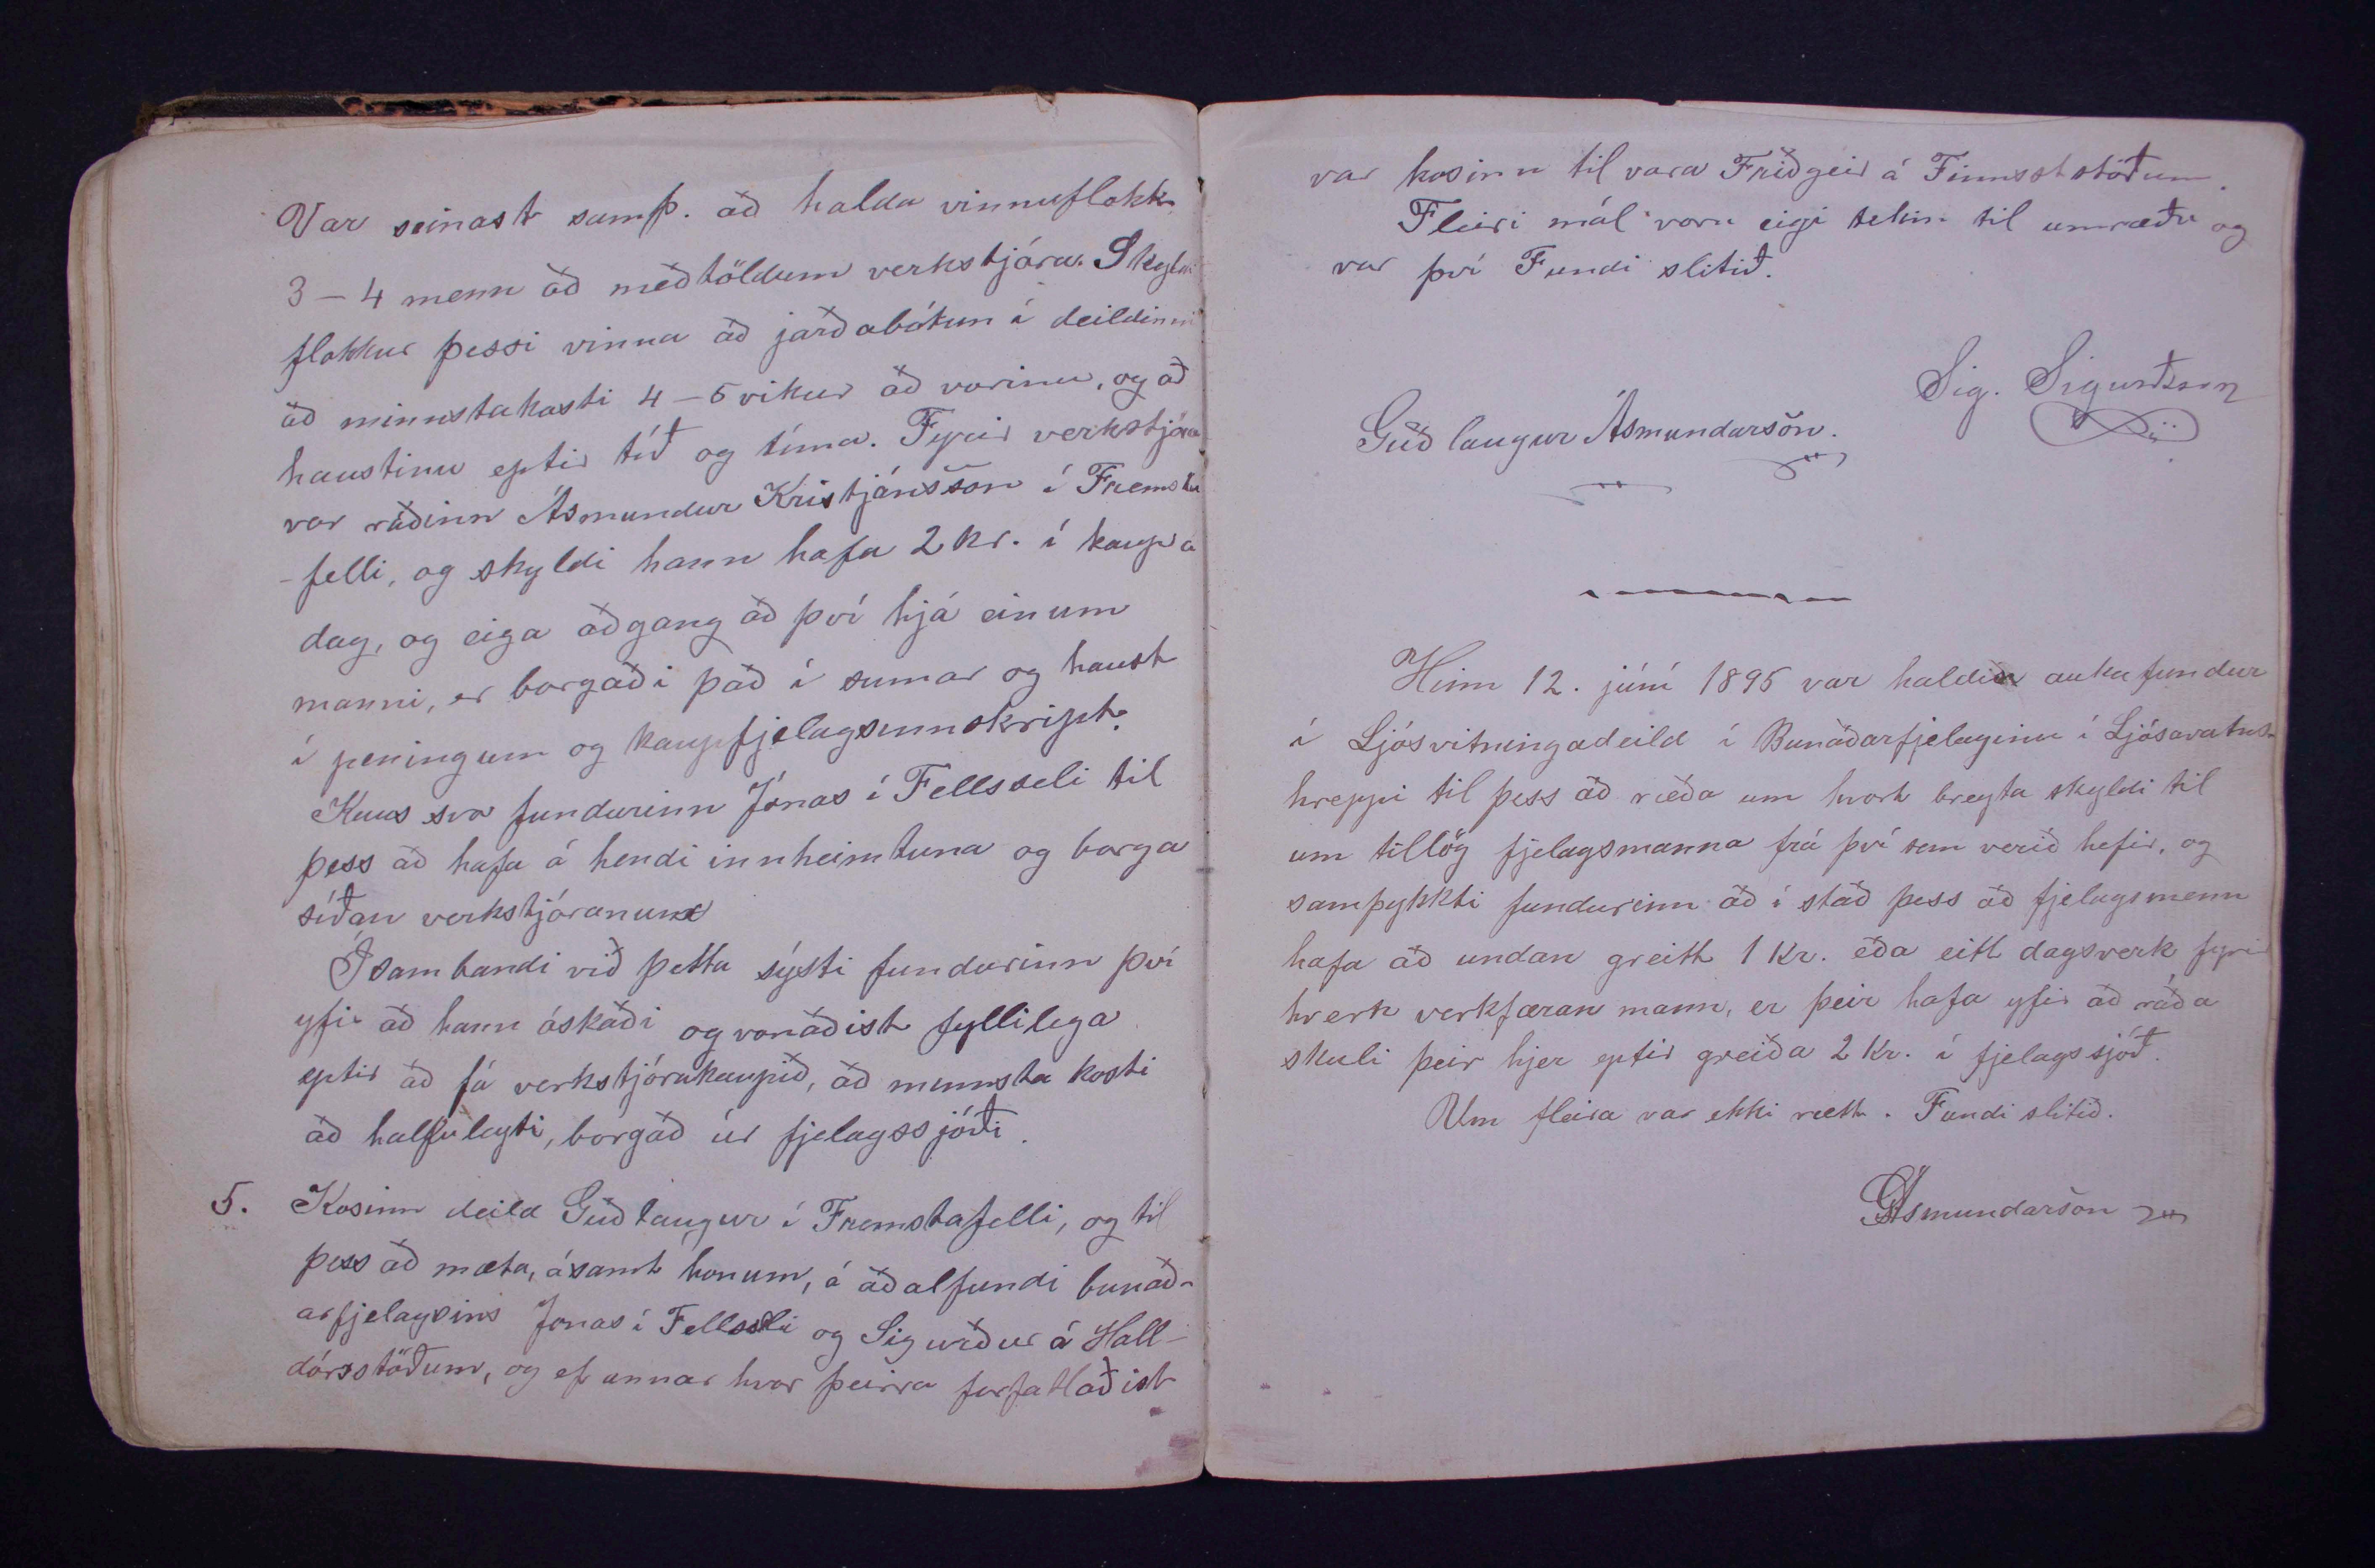 Var seinast samþ. að halda vinnuflokk
3–4 menn að meðtöldum verkstjóra. Skyldi
flokkur þessi vinna að jarðabótum í deildinni
að minnstakosti 4–5 vikur að vorinu, og að
haustinu eptir tíð og tíma. Fyrir verkstjóra
var ráðinn Ásmundur Kristjánsson í Fremsta
-felli, og skyldi hann hafa 2 kr. í kaup á
dag, og eiga aðgang að því hjá einum
manni, er borgaði það í sumar og haust
í peningum og kaupfjelagsinnskript.
Kaus svo fundurinn Jónas í Fellsseli til
þess að hafa á hendi innheimtuna og borga
síðan verkstjóranum
Í sambandi við þetta lýsti fundurinn því
yfir að hann óskaði og vonaðist fyllilega
eptir að fá verkstjórakaupið, að minnsta kosti
að halfuleyti, borgað úr fjelagssjóði.
5. Kosinn deild Guðlaugur í Fremstafelli, og til
þess að mæta, ásamt honum, á aðalfundi bunað-
arfjelagsins Jonas í Fellsseli og Sigurður á Hall-
dórsstöðum, og ef annar hvor þeirra forfallaðist
var kosinn til vara Friðgeir á Finnsstöðum.
Fleiri mál voru eigi tekin til umræðu og
var því Fundi slitið.
Sig. Sigurðsson
Guðlaugur Ásmundarson.
Hinn 12. júní 1895 var haldin aukafundur
í Ljósvitningadeild í Bunaðarfjelaginu í Ljósavatns-
hreppi til þess að ræða um hvort breyta skyldi til
um tillög fjelagsmanna frá því sem verið hefir, og
samþykkti fundurinn að í stað þess að fjelagsmenn
hafa að undan greitt 1 Kr. eða eitt dagsverk fyrir
hvern verkfæran mann, er þeir hafa yfir að ráða
skuli þeir hjer eptir greiða 2 Kr. í fjelagssjóð.
Um fleira var ekki rætt. Fundi slitið.
GÁsmundarson